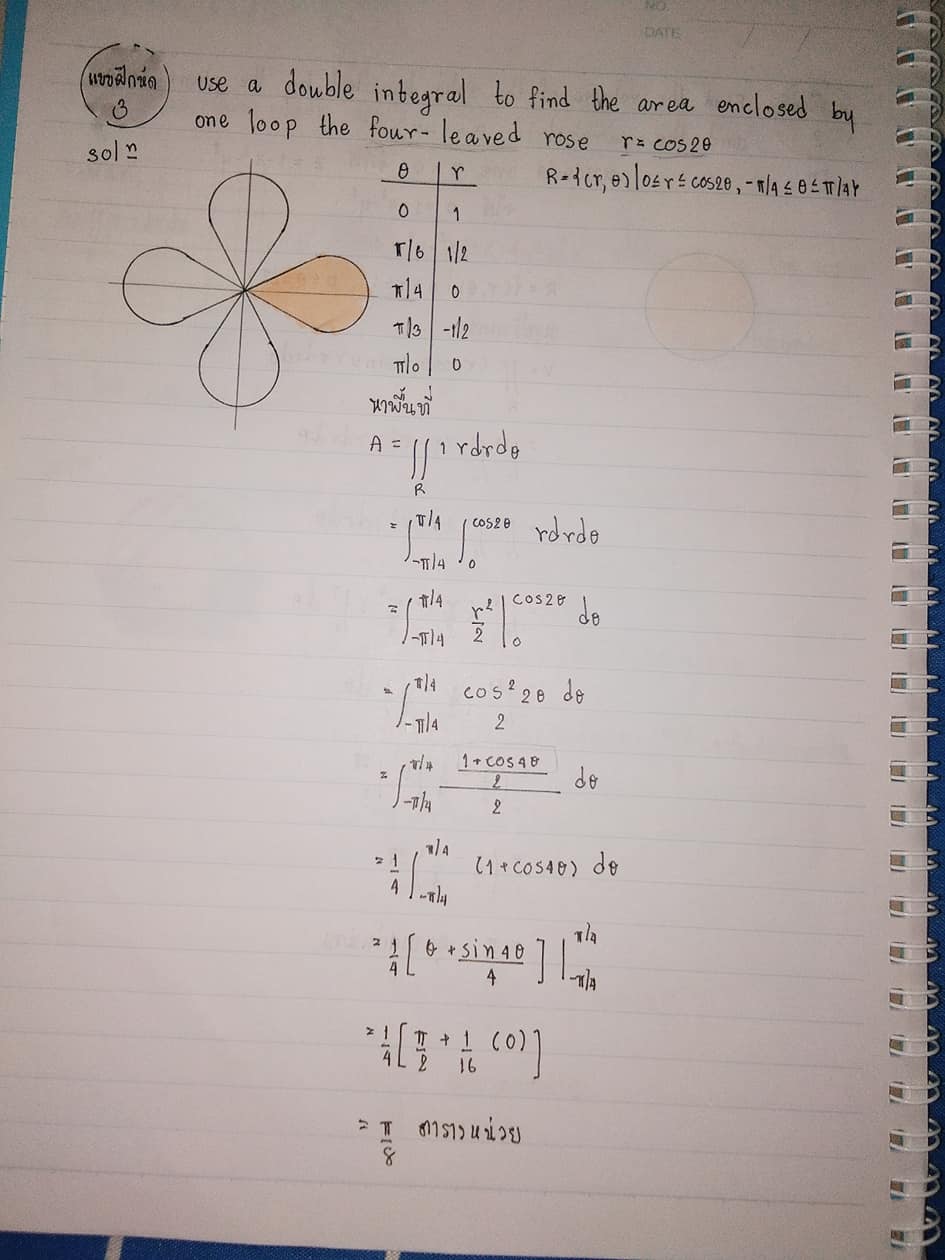 NO.
DATE / /
แบบฝึกหัด
3
use a double integral to find the area enclosed by
one loop the four-leaved rose r = cos2θ
solⁿ
θ | r
R = {(r, θ) | 0 ≤ r ≤ cos2θ, -π/4 ≤ θ ≤ π/4}
0 | 1
π/6 | 1/2
π/4 | 0
π/3 | -1/2
π/0 | 0
หาพื้นที่
A = ∬_R 1 rdrdθ
= ∫_{-π/4}^{π/4} ∫_0^{cos2θ} rdrdθ
= ∫_{-π/4}^{π/4} r²/2 |_0^{cos2θ} dθ
= ∫_{-π/4}^{π/4} cos²2θ/2 dθ
= ∫_{-π/4}^{π/4} ((1+cos4θ)/2)/2 dθ
= 1/4 ∫_{-π/4}^{π/4} (1+cos4θ) dθ
= 1/4 [θ + sin4θ/4] |_{-π/4}^{π/4}
= 1/4 [π/2 + 1/16 (0)]
= π/8 ตารางหน่วย